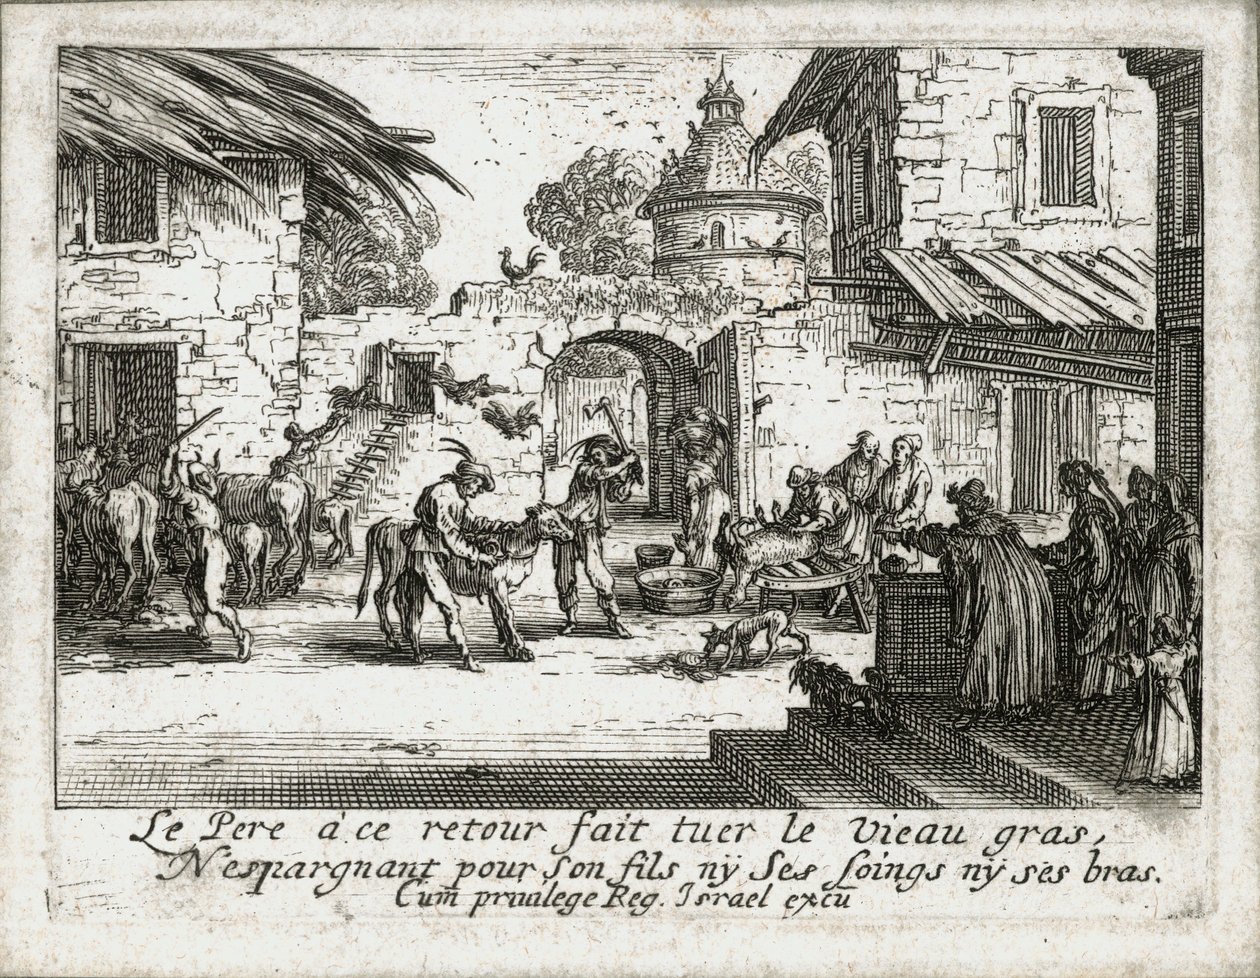 Le Pere à ce retour fait tuer le vieau gras,
N'espargnant pour son fils nÿ ses soings nÿ ses bras.
Cum̃ priuilege Reg. Israel excū